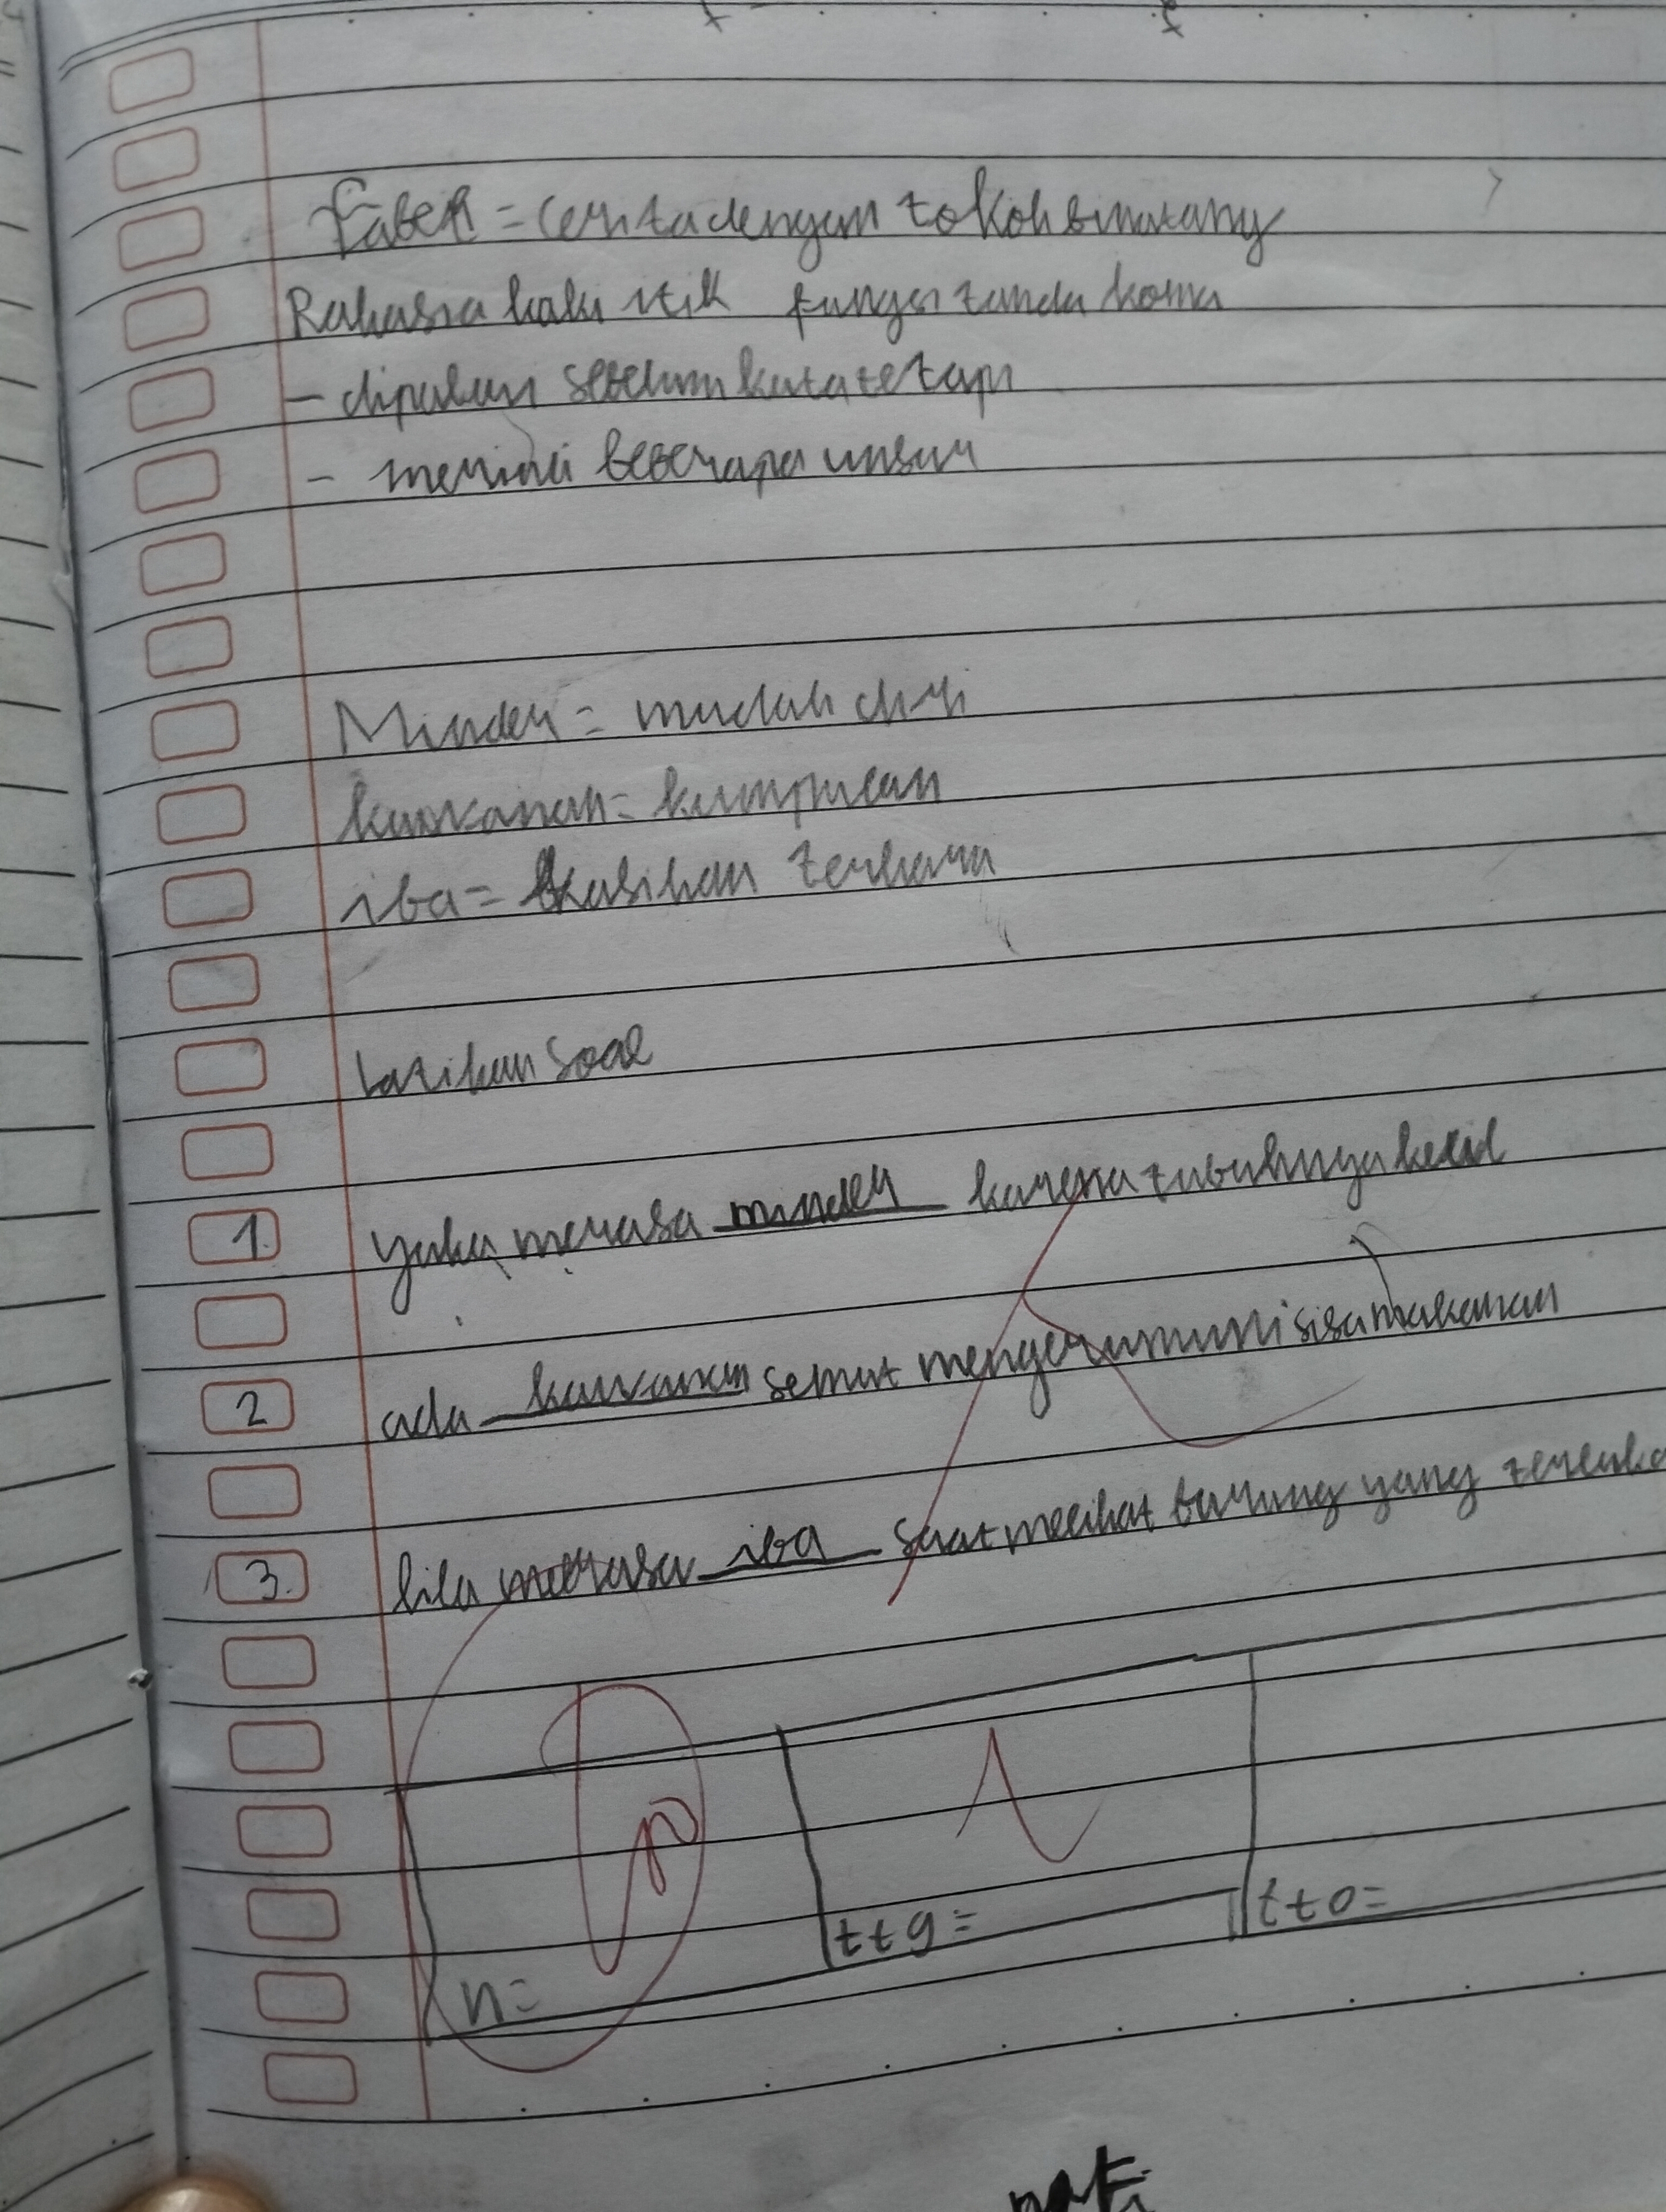 Fabel = cerita dengan tokoh binatang
Rahasia kaki itik fungsi tanda koma
- dipakai sebelum kata tetapi
- merinci beberapa unsur
Minder = rendah diri
kawanan = kumpulan
iba = kasihan terharu
Latihan soal
1. yuka merasa minder karena tubuhnya kecil
2 ada kawanan semut mengerumuni sisa makanan
3. lila merasa iba saat melihat burung yang
n= ttg= tto=